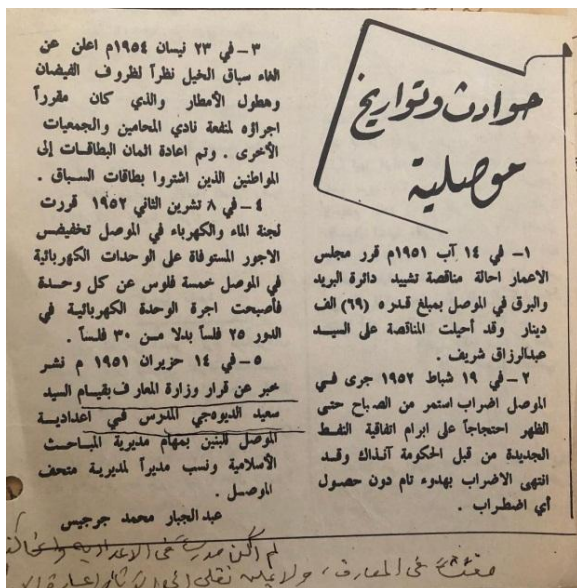 حوادث وتواريخ
موصلية
١– في ١٤ آب ١٩٥١م قرر مجلس
الاعمار احالة مناقصة تشييد دائرة البريد
والبرق في الموصل بمبلغ قدره (٦٩) الف
دينار وقد أحيلت المناقصة على السيد
عبدالرزاق شريف .
٢ – في ١٩ شباط ١٩٥٢ جرى في
الموصل اضراب استمر من الصباح حتى
الظهر احتجاجاً على ابرام اتفاقية النفط
الجديدة من قبل الحكومة آنذاك وقد
انتهى الاضراب بهدوء تام دون حصول
أي اضطراب .
٣ – في ٢٣ نيسان ١٩٥٤م اعلن عن
الغاء سباق الخيل نظراً لظروف الفيضان
وهطول الأمطار والذي كان مقرراً
اجراؤه لمنفعة نادي المحامين والجمعيات
الأخرى . وتم اعادة اثمان البطاقات إلى
المواطنين الذين اشتروا بطاقات السباق .
٤ – في ٨ تشرين الثاني ١٩٥٢ قررت
لجنة الماء والكهرباء في الموصل تخفيض
الاجور المستوفاة على الوحدات الكهربائية
في الموصل خمسة فلوس عن كل وحدة
فأصبحت اجرة الوحدة الكهربائية في
الدور ٢٥ فلساً بدلا من ٣٠ فلساً .
٥ – في ١٤ حزيران ١٩٥١ م نشر
خبر عن قرار وزارة المعارف بقيام السيد
سعيد الديوه‌جي المدرس في اعدادية
الموصل للبنين بمهام مديرية المباحث
الأسلامية ونسب مديراً لمديرية متحف
الموصل .
عبد الجبار محمد جرجيس
لم اكن مدرسا في الاعدادية
في المعارف ،